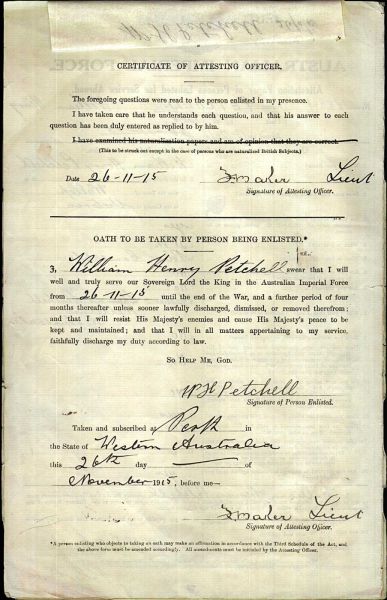 W H Petchell
CERTIFICATE OF ATTESTING OFFICER.
The foregoing questions were read to the person enlisted in my presence.
I have taken care that he understands each question, and that his answer to each
question has been duly entered as replied to by him.
I have examined his naturalization papers and am of opinion that they are correct.
(This to be struck out except in the case of persons who are naturalized British Subjects.)
Date 26-11-15 Lieut
Signature of Attesting Officer.
OATH TO BE TAKEN BY PERSON BEING ENLISTED.*
I, William Henry Petchell swear that I will
well and truly serve our Sovereign Lord the King in the Australian Imperial Force
from 26-11-15 until the end of the War, and a further period of four
months thereafter unless sooner lawfully discharged, dismissed, or removed therefrom;
and that I will resist His Majesty's enemies and cause His Majesty's peace to be
kept and maintained; and that I will in all matters appertaining to my service,
faithfully discharge my duty according to law.
SO HELP ME, GOD.
W H Petchell
Signature of Person Enlisted.
Taken and subscribed at Perth in
the State of Western Australia
this 26th day of
November 1915, before me—
Lieut
Signature of Attesting Officer.
*A person enlisting who objects to taking an oath may make an affirmation in accordance with the Third Schedule of the Act, and
the above form must be amended accordingly. All amendments must be initialed by the Attesting Officer.